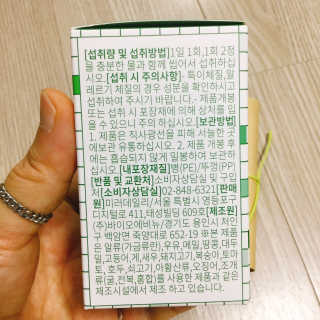 [섭취량 및 섭취방법]1일 1회,1회 2정
을 충분한 물과 함께 씹어서 섭취하십
시오.[섭취 시 주의사항]- 특이체질,알
레르기 체질의 경우 성분을 확인하시고
섭취하여 주시기 바랍니다.- 제품개봉
또는 섭취 시 포장재에 의해 상처를 입
을 수 있으니 주의 하십시오.[보관방법]
1. 제품은 직사광선을 피해 서늘한 곳
에보관 유통하십시오. 2. 제품 개봉 후
에는 흡습되지 않게 밀봉하여 보관하
십시오. [내포장재질]병(PE)/뚜껑(PP)
[반품 및 교환처]소비자상담실 및 구입
처[소비자상담실]02-848-6321[판매
원]미러데일리/서울 특별시 영등포구
디지털로 411,태성빌딩 609호[제조원]
(주)바이오에비뉴/경기도 용인시 처인
구 백암면 죽양대로 652-19 ※본 제품
은 알류(가금류란),우유,메밀,땅콩,대두
밀,고등어,게,새우,돼지고기,복숭아,토마
토, 호두, 쇠고기,아황산류,오징어,조개
류(굴,전복,홍합)를 사용한 제품과 같은
제조시설에서 제조 하고 있습니다.